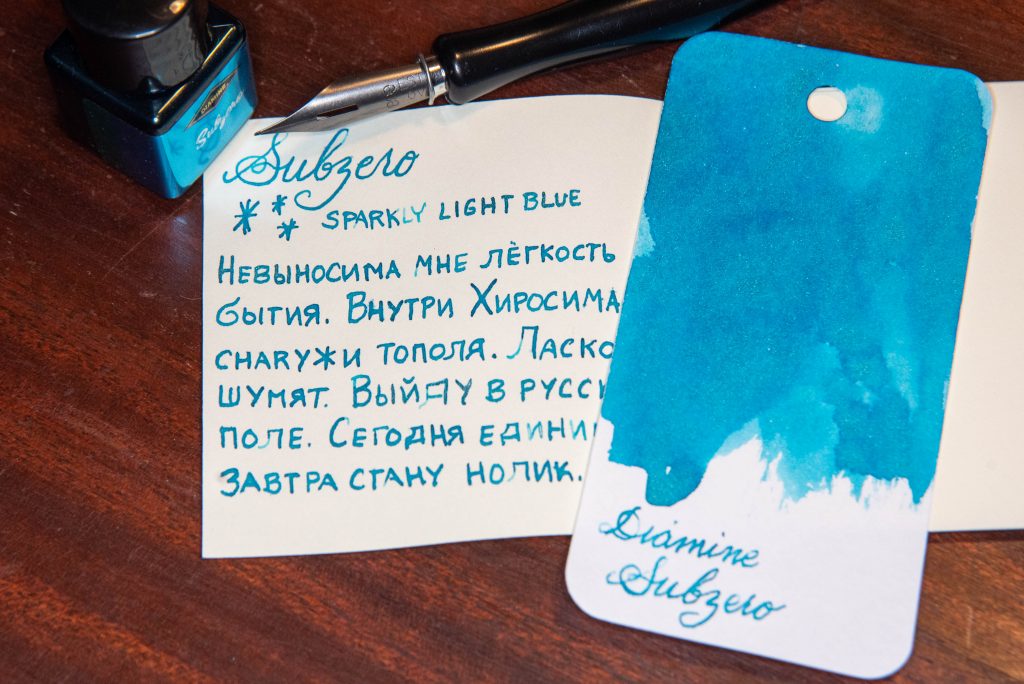 DIAMINE
Subzero
Subzero
SPARKLY LIGHT BLUE
НЕВЫНОСИМА МНЕ ЛЁГКОСТЬ
БЫТИЯ. ВНУТРИ ХИРОСИМА
СНАRУЖИ ТОПОЛЯ. ЛАСКО
ШУМЯТ. ВЫЙДУ В РУССК
ПОЛЕ. СЕГОДНЯ ЕДИНИ
ЗАВТРА СТАНУ НОЛИК.
Diamine
Subzero